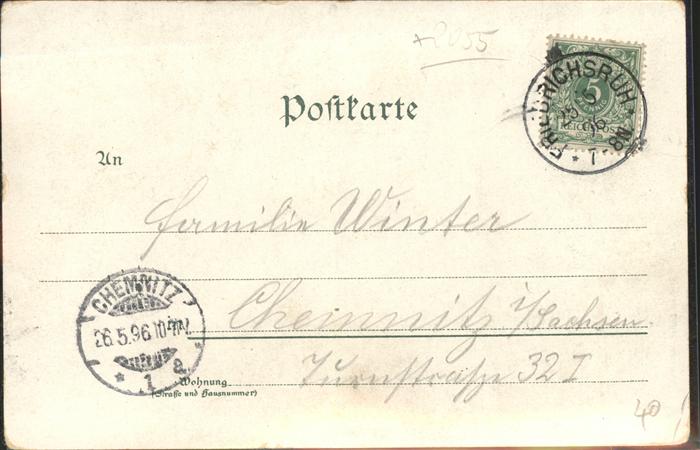 +2055
Postkarte
5
REICHSPOST
FRIEDRICHSRUH
An
Familie Winter
CHEMNITZ
26.5.96.10-11V.
* 1 a
Chemnitz i/Sachsen
Wohnung
(Straße und Hausnummer)
Turnstraße 32 I
40